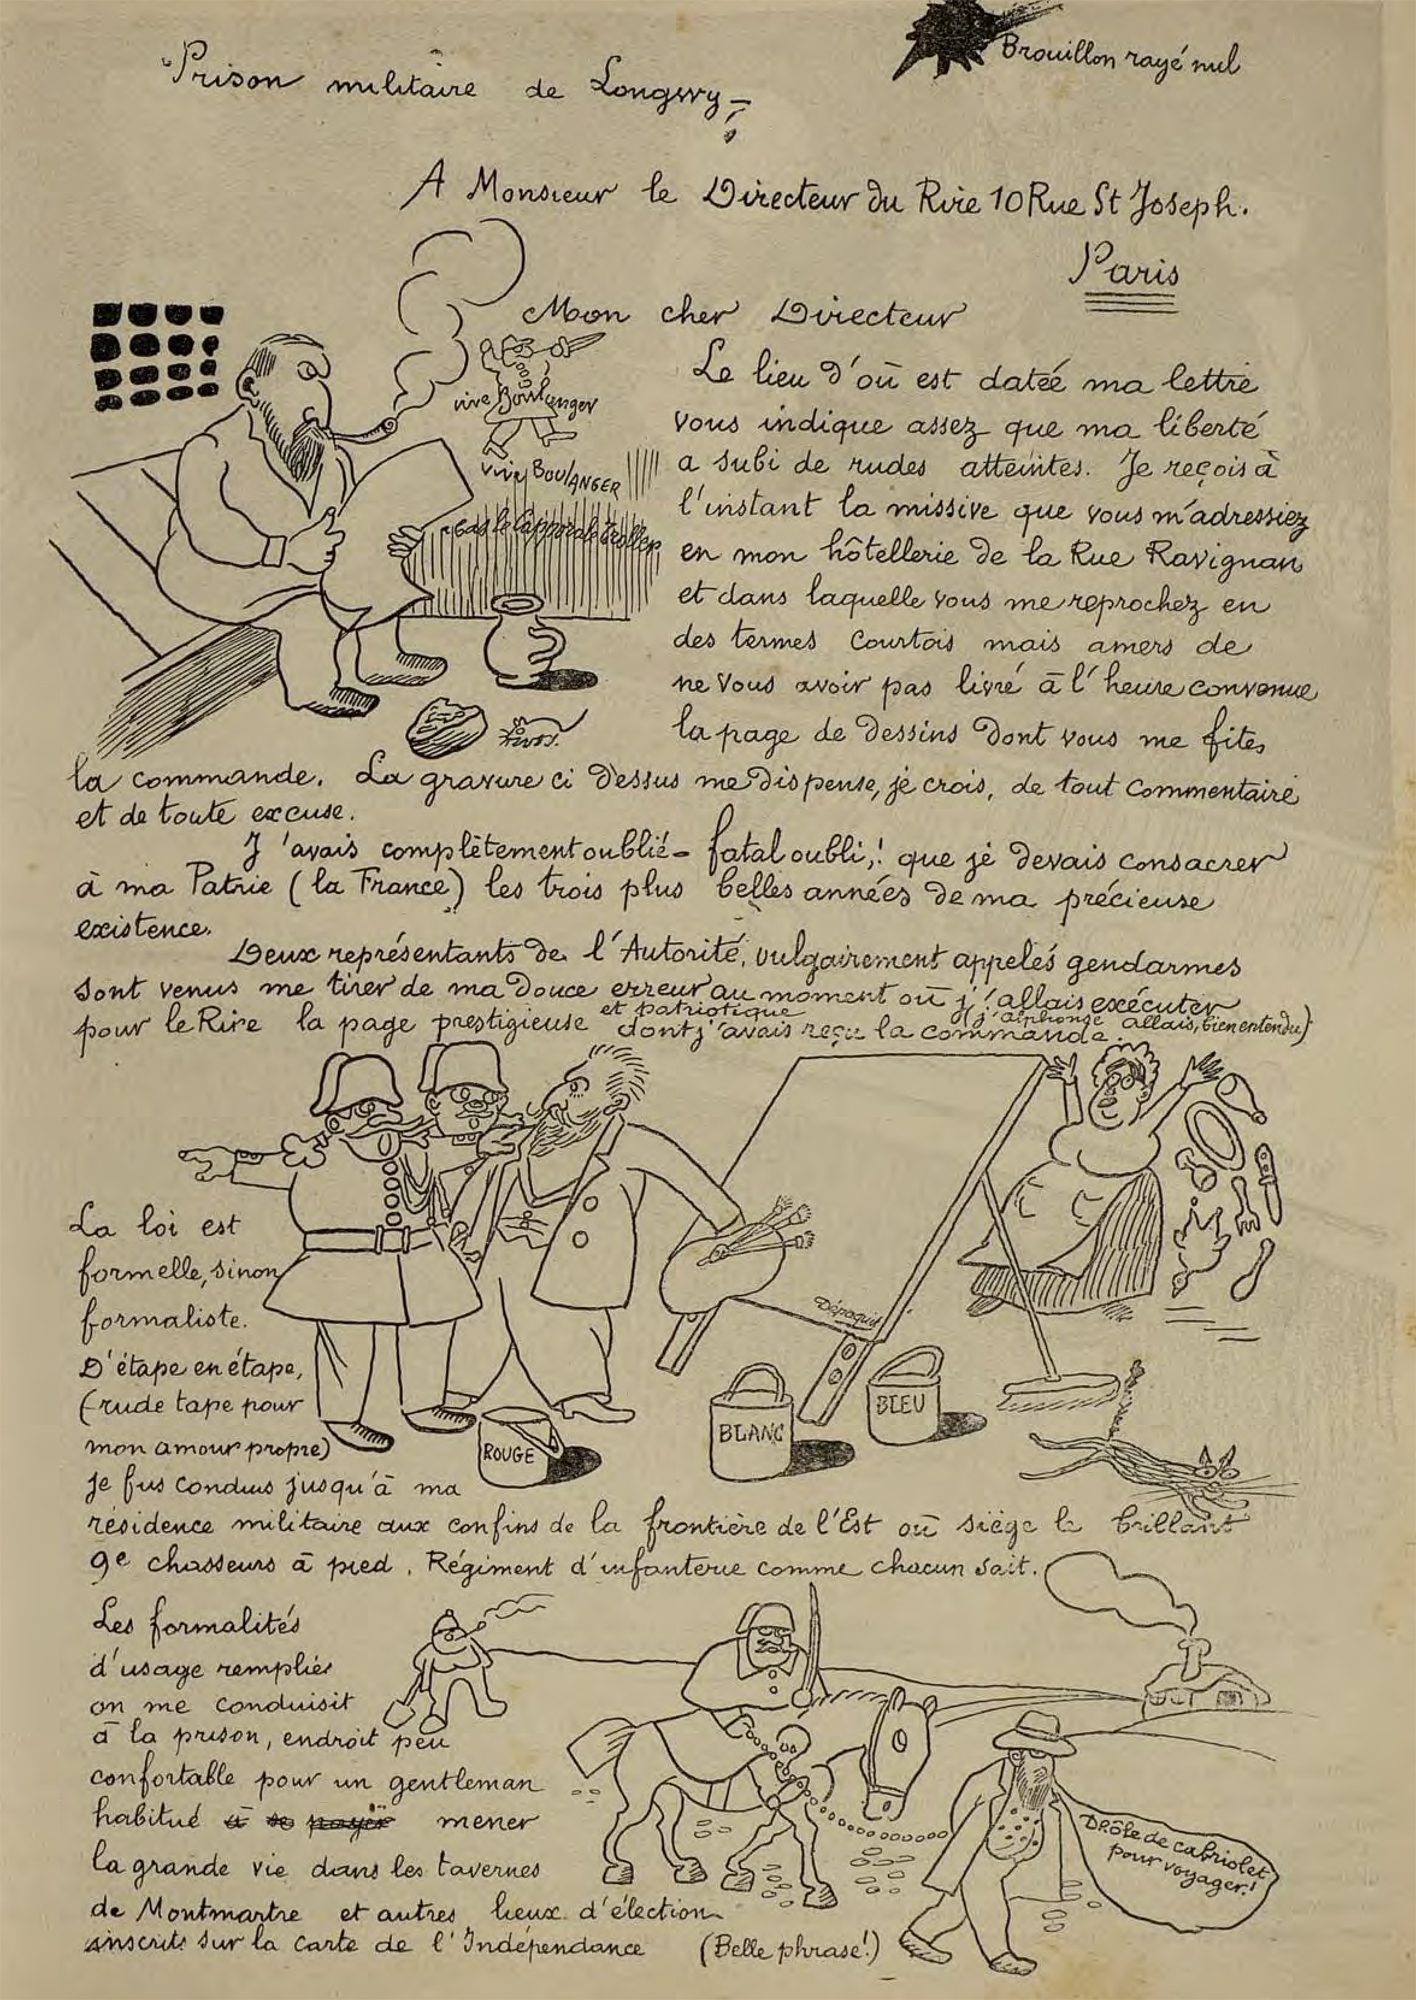 Brouillon rayé nul
Prison militaire de Longwy
A Monsieur le Directeur du Rire 10 Rue St Joseph.
Paris
Mon cher Directeur
vive Boulanger
vive BOULANGER
Le lieu d'où est datée ma lettre
vous indique assez que ma liberté
a subi de rudes atteintes. Je reçois à
l'instant la missive que vous m'adressiez
en mon hôtellerie de la Rue Ravignan
et dans laquelle vous me reprochez en
des termes courtois mais amers de
ne vous avoir pas livré à l'heure convenue
la page de dessins dont vous me fites
la commande. La gravure ci dessus me dispense, je crois, de tout commentaire
et de toute excuse.
J'avais complètement oublié - fatal oubli,! que je devais consacrer
à ma Patrie (la France) les trois plus belles années de ma précieuse
existence.
Deux représentants de l'Autorité, vulgairement appelés gendarmes
sont venus me tirer de ma douce erreur au moment où j'allais exécuter
(j'alphonse allais, bien entendu)
pour le Rire la page prestigieuse et patriotique dont j'avais reçu la commande.
La loi est
formelle, sinon
formaliste.
D'étape en étape,
(rude tape pour
mon amour propre)
je fus conduis jusqu'à ma
Dépaquit
ROUGE
BLANC
BLEU
résidence militaire aux confins de la frontière de l'Est où siège le brillant
9e chasseurs à pied. Régiment d'infanterie comme chacun sait.
Les formalités
d'usage remplies
on me conduisit
à la prison, endroit peu
confortable pour un gentleman
habitué à se payer mener
la grande vie dans les tavernes
de Montmartre et autres lieux d'élection
inscrits sur la carte de l'Indépendance (Belle phrase!)
Drôle de cabriolet
pour voyager!